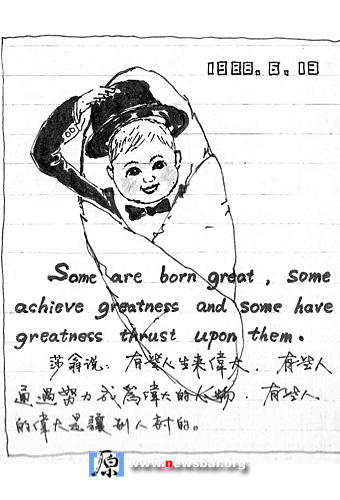 1988. 5. 13
Some are born great, some
achieve greatness and some have
greatness thrust upon them.
莎翁说：有些人生来偉大，有些人
通過努力成為偉大的人物，有些人
的偉大是讓别人封的。
原 www.newsbar.org